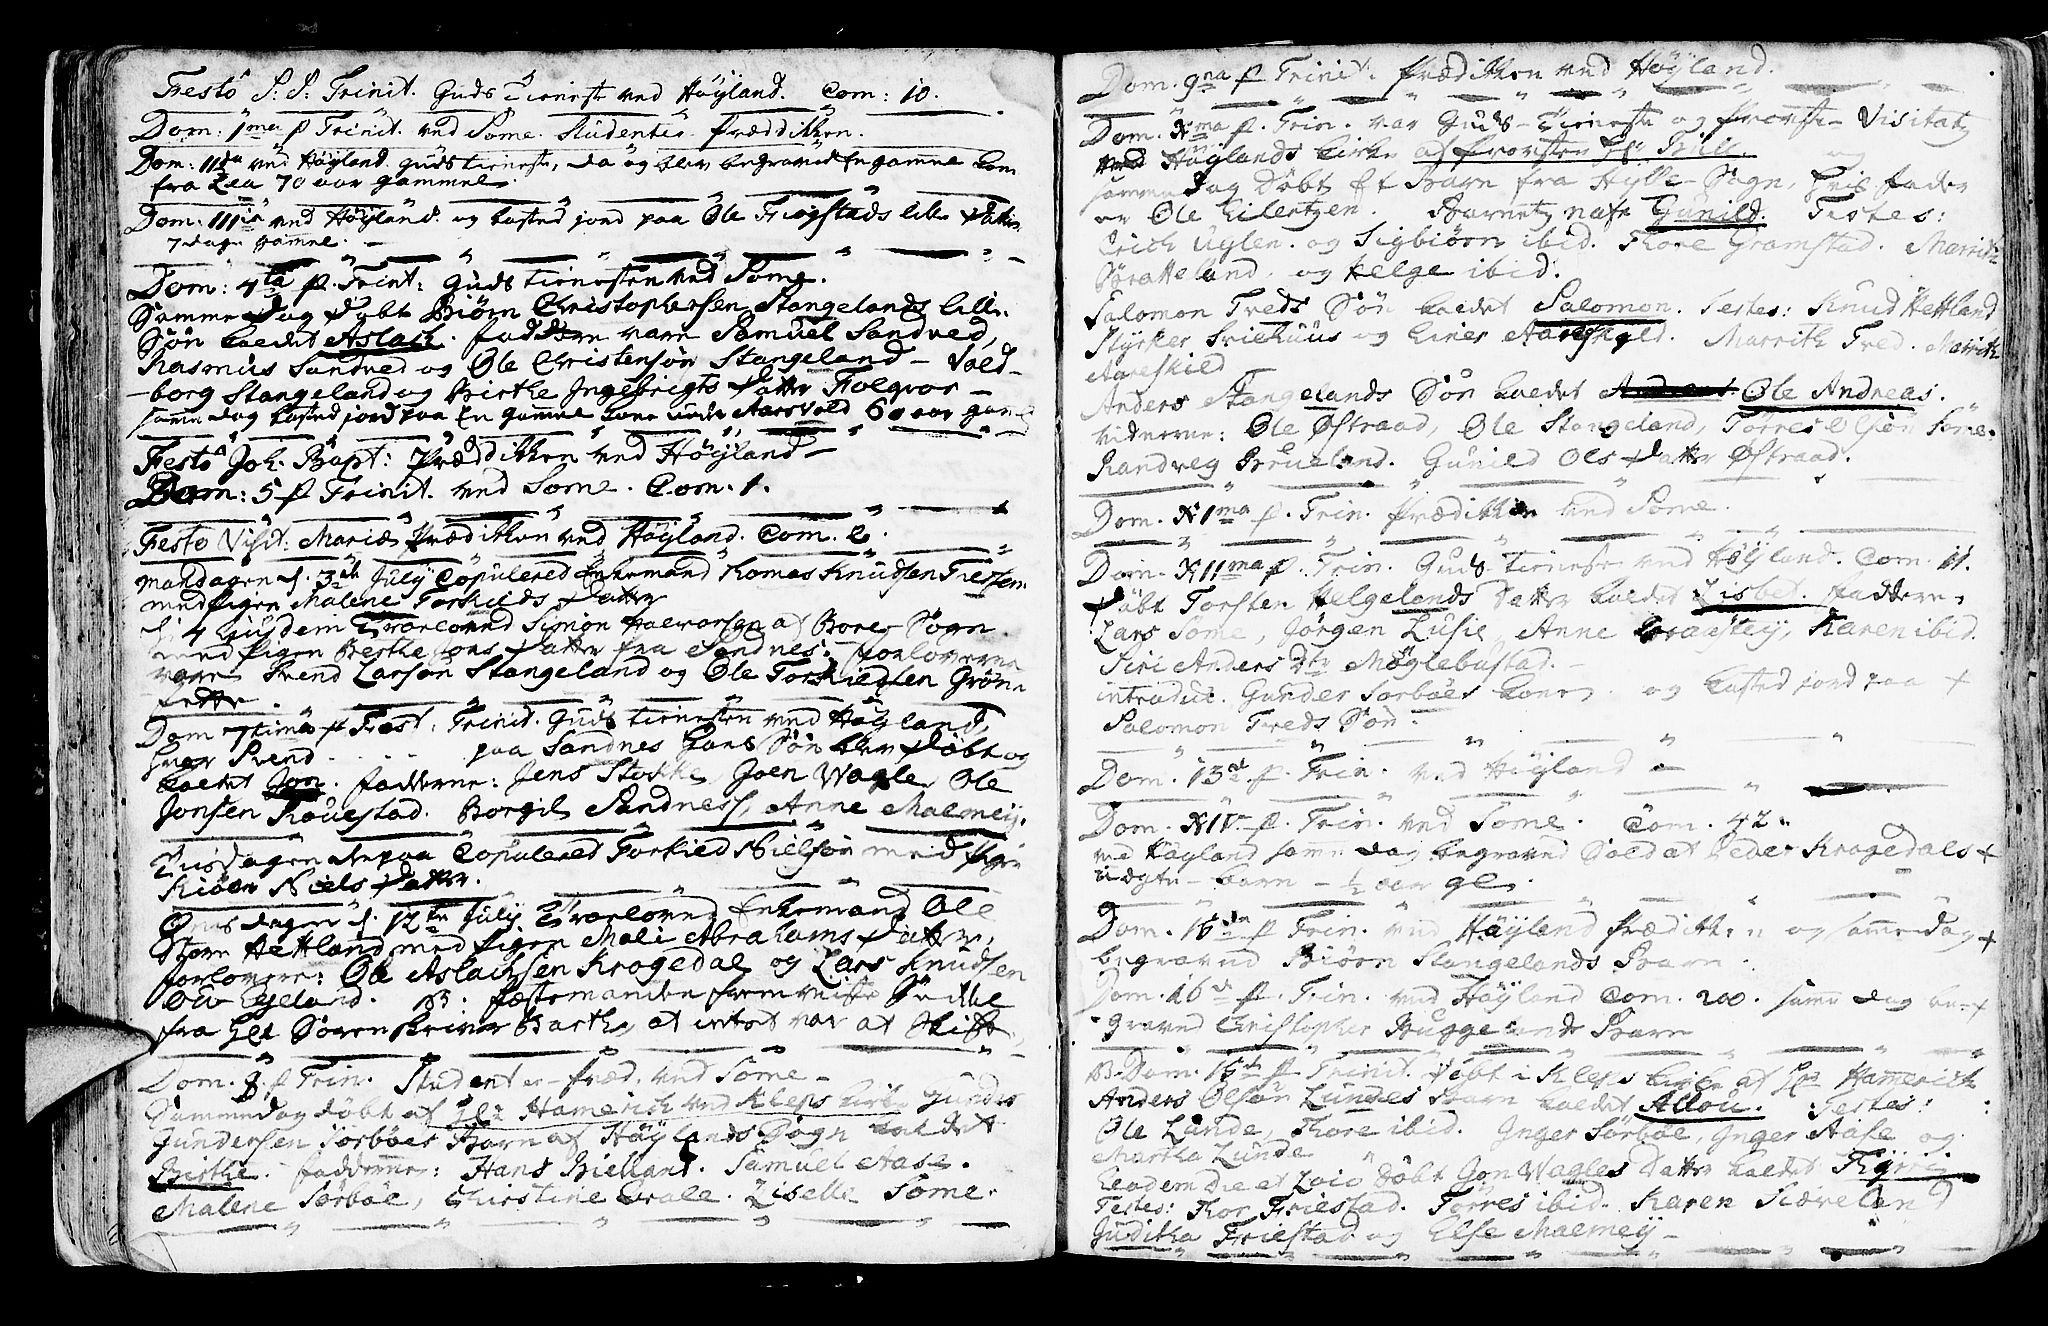 Festô S: S: Trinit. Guds Tieneste ved Höyland. Com: 10.
Dom: 1ma p Trinit. ved Some. Studenter Præddikken.
Dom: 11da ved Höyland. Guds tieneste, da og blev begraved En gammel kone
fra Lea 70 aar gammel.
Dom: 111tia ved Höyland. og kasted jord paa Ole Friogstads lille Datter
7 dage gammel.
Dom: 4ta p. Trinit: Guds tienesten ved Some.
Samme Dag Døbt Biörn Christophersen Stangelands lille
Søn kaldet Aslach. faddere vare Samuel Sandved,
Rasmus Sandved og Ole Christensøn Stangeland - Vold-
-borg Stangeland og Birthe Ingebrigts Datter Folgvor -
samme dag kasted jord paa En gammel kone under Aarsvold 60 aar gam
Festô Joh: Bapt: Præddikken ved Höyland -
Dom: 5 p Trinit. ved Some. Com. 1.
Festo Visit: Mariæ Præddikken ved Höyland. Com. 2.
Mandagen d. 3die July Copulered Enkemand Thomas Knudsen
med Pigen Malene Torkilds Datter
d: 4 Ejusdem Trolovend Simon Halvorsen af Bore Sogn
med Pigen Berthe Jons Datter fra Sandnes: forloverne
vare Svend Larsøn Stangeland og Ole Torkildsen Gröne
Dom 7tima p Fest: Trinit. Guds tienesten ved Höyland,
hvor Svend . . . paa Sandnes hans Søn blev Døbt og
kaldet Jon. fadderne: Jens Stokke, Joen Wagle, Ole
Jonsen Rovestad. Borgil Sandness, Anne Malmeij.
Tiisdagen derpaa Copulered Torkild Nielsøn med Pigen
Niels Datter.
Onsdagen d. 12te July Trolovend Enkemand Ole
Hettland med Pigen Mali Abrahams Datter,
forlovere: Ole Aslachsen Krogedal og Lars Knudsen
. NB: fæstemanden fremviiste Sædde
fra Hr Sorenskriver Barth, at intet var at Skifte,
Dom. 8. p Trin. Studenter - Præd. ved Some -
Samme dag döbt af Hr Hamerich ved Kleps kirke Gunder
Gundersen Sörböes Barn af Höylands Sogn kaldet
Birthe. fadderne: Hans Bielland. Samuel Aase.
Malene Sörböe, Christine Erale. Liselle Some.
Dom. 9na p Trinit. Prædikken ved Höyland.
Dom. Xma p. Trin. var Guds-Tieneste og Provste-Visitatz
ved Höylands kirke af Provsten Hr Bill. og
samme Dag Döbt Et Barn fra Sogn, hvis fader
er Ole Eilertzen. Barnetz nafn Gunild. Testes:
Erich Uglen. og Sigbiörn ibid. Thore Gramstad. Marrith
Bratteland. og Helge ibid.
Salomon Treds Sön kaldet Salomon. Testes: Knud Hettland
Styrker og Einer Aareskiold. Marrith Tred. Marrith
Aareskild
Anders Stangelands Sön kaldet Ole Andreas.
vidnerne: Ole Østraad, Ole Stangeland, Torres Olsön Some.
Randveg Brueland. Gunild Ols Datter Østraad.
Dom. X1ma p. Trin. Prædikken ved Some.
Dom. X11ma p. Trin. Guds Tieneste ved Höyland. Com. 11.
Döbt Torsten Helgelands Datter kaldet Lisbet. faddere,
Lars Some, Jörgen Lusie, Anne Graasteij, Karen ibid.
Siri Anders dtr Möglebustad.
introdu. Gunder Sorböes kone. og kasted jord paa +
Salomon Treds Sön.
Dom. 13de p. Trin. ved Höyland -
Dom. XIV p. Trin. ved Some. Com. 42.
ved Höyland samme dag begraved Soldat Peder Krogedals +
uægte - barn - ½ aar gl.
Dom. 15de p Trin. ved Höyland Prædikken og samme dag +
begraved Biörn Stangelands Barn.
Dom. 16de p. Trin. ved Höyland Com. 200. samme dag be- +
graved Christopher Buggelands Barn
NB. Dom. 15de p Trinit. Döbt i Kleps kirke af Hr Hamerich
Anders Olsön Lundes Barn kaldet Allou. Testes:
Ole Lunde, Thore ibid. Inger Sörböe, Inger Aase og
Martha Lunde
Eadem Die et Loco Döbt Jon Wagles Datter kaldet
Testes: Thor Friestad. Torres ibid. Karen Siæveland
Guditha Friestad og Else Malmeij -